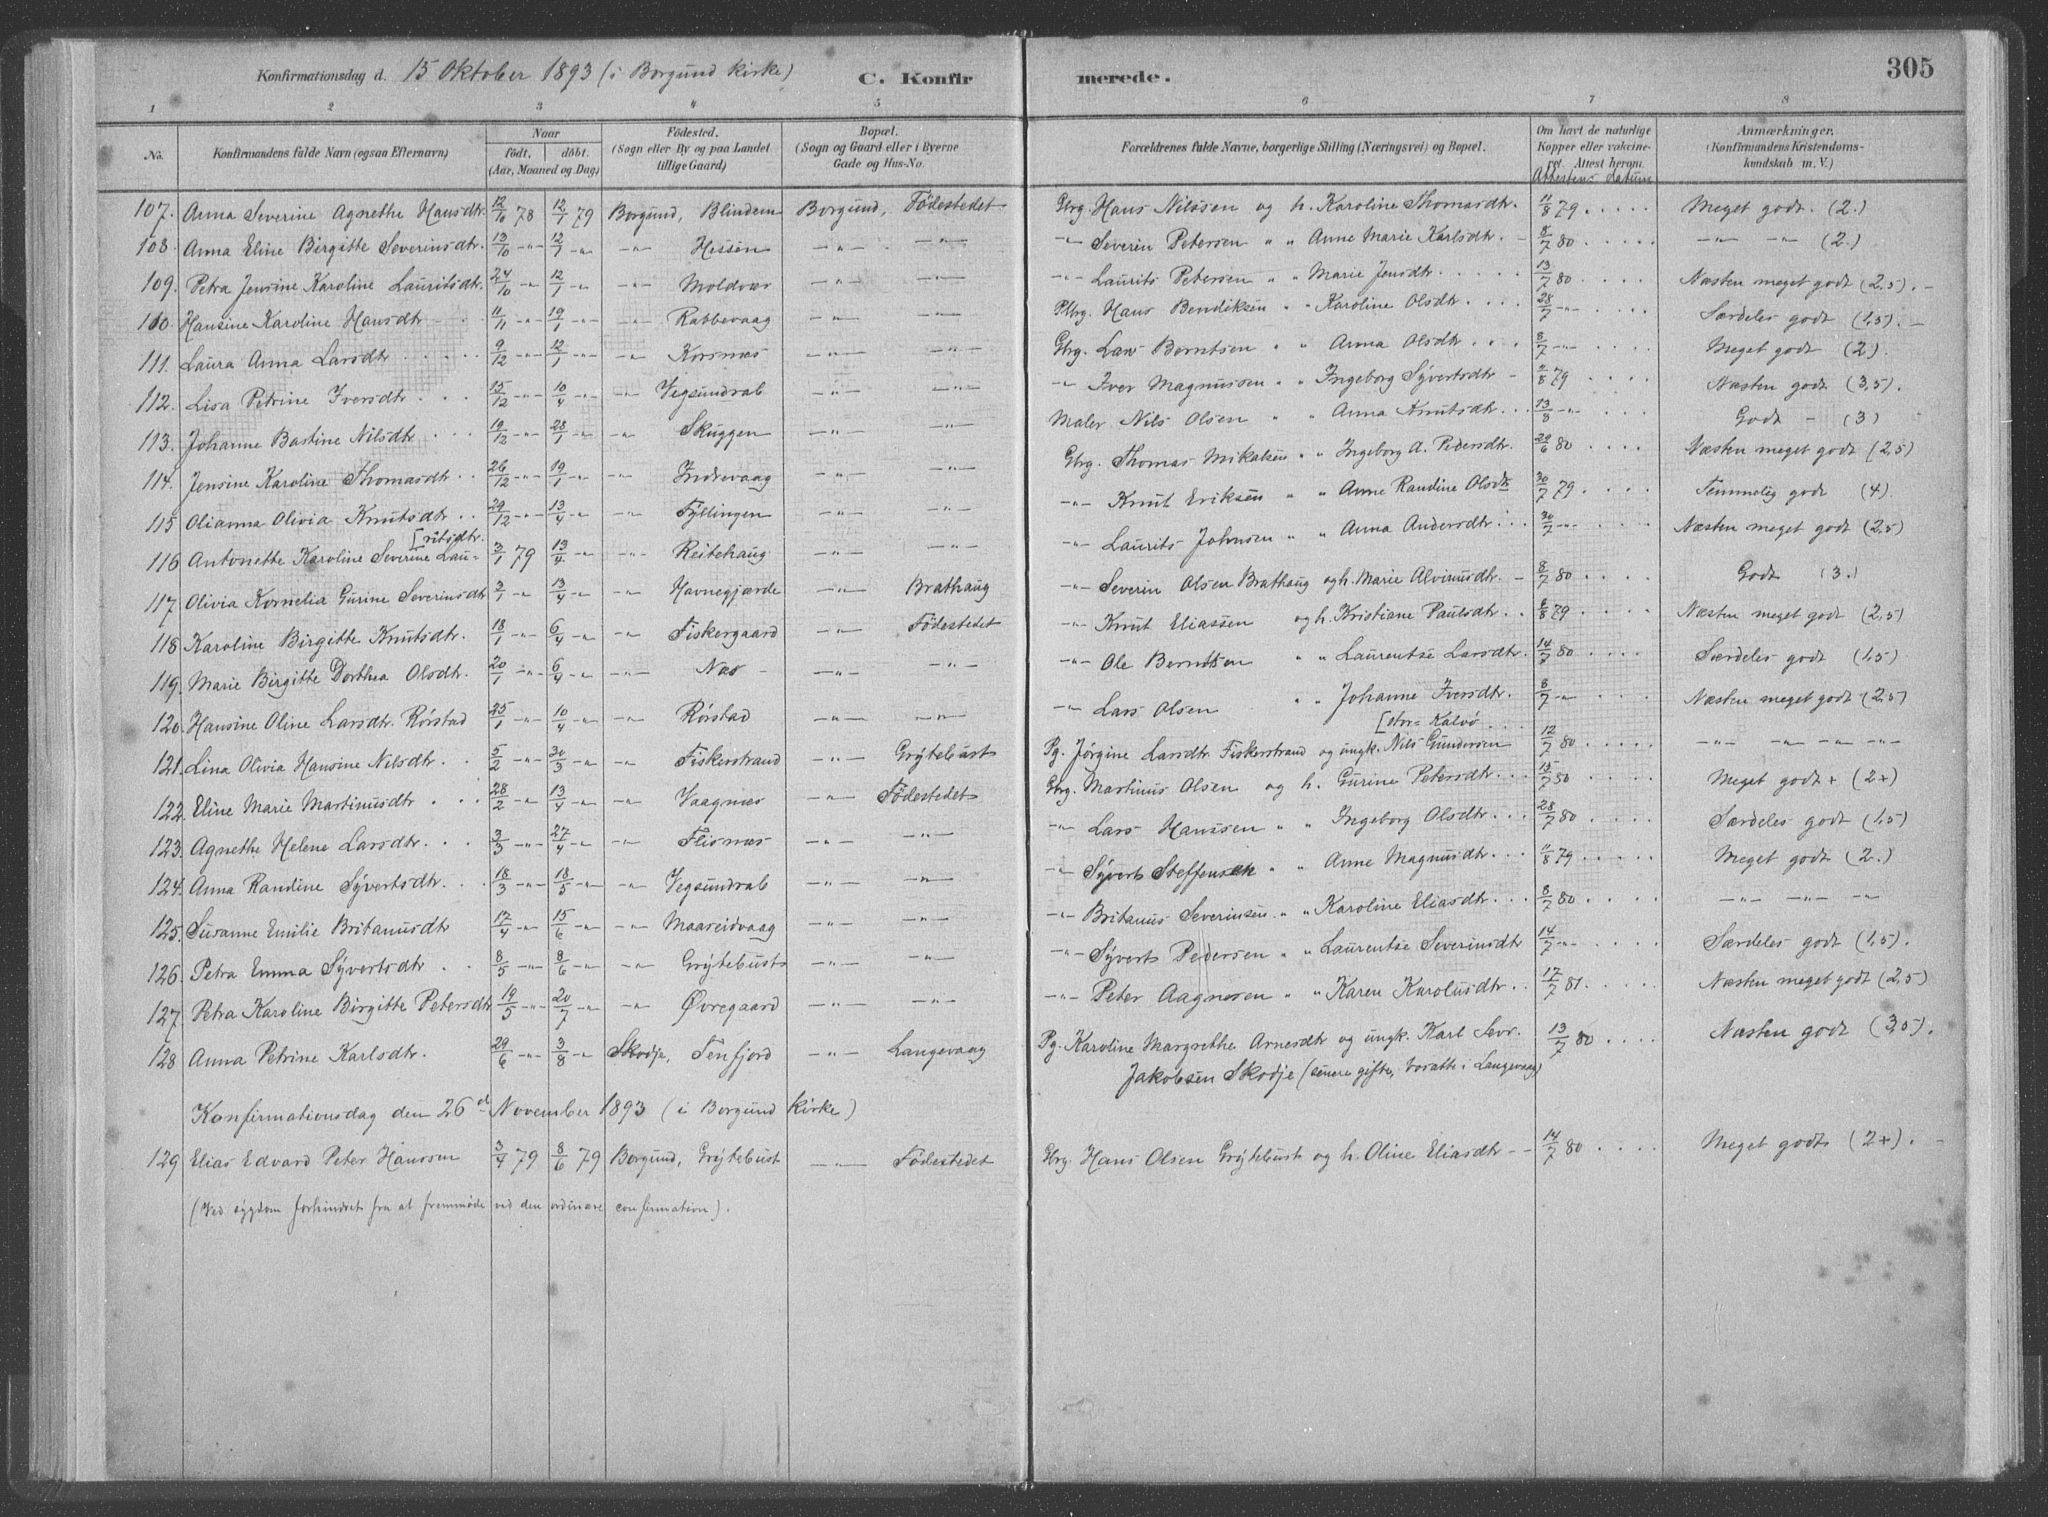 Konfirmationsdag d. 15 Oktober 1893 (i Borgund kirke) C. Konfirmerede. 305
1 2 3 4 5 6 7 8
No. Konfirmandens fulde Navn (ogsaa Efternavn) Naar födt, döbt. (Aar, Maaned og Dag) Födested. (Sogn eller By og paa Landet tillige Gaard) Bopæl. (Sogn og Gaard eller i Byerne Gade og Hus-No. Forældrenes fulde Navne, borgerlige Stilling (Næringsvei) og Bopæl. Om havt de naturlige Kopper eller vakcineret. Attest herom. Attestens datum Anmærkninger. (Konfirmandens Kristendomskundskab m. V.)
107. Anna Severine Agnethe Hansdtr. 12/10 78 12/1 79 Borgund, Blindem Borgund, Födestedet Gbrg. Hans Nilssen og h. Karoline Thomasdtr. 11/8 79 Meget godt. (2.)
108. Anna Eline Birgitte Severinsdtr. 13/10 -"- 12/1 -"- -"- Hessen -"- -"- -"- Severin Petersen " " Anne Marie Karlsdtr. 8/7 80 -"- -"- (2.)
109. Petra Jensine Karoline Lauritsdtr. 24/10 -"- 12/1 -"- -"- Moldvær -"- -"- -"- Laurits Petersen " " Marie Jensdtr. 13/7 80 Næsten meget godt (2,5).
110. Hansine Karoline Hansdtr 11/11 -"- 19/1 -"- -"- Rabbevaag -"- -"- Pbrg. Hans Bendiksen " " Karoline Olsdtr. 28/7 -"- Særdeles godt (1,5).
111. Laura Anna Larsdtr 9/12 -"- 12/1 -"- -"- Korsnæs -"- -"- Gbrg. Lars Berntsen " " Anna Olsdtr 8/7 -"- Meget godt (2).
112. Lisa Petrine Iversdtr. 15/12 -"- 10/4 -"- -"- Vegsundrab -"- -"- -"- Iver Magnussen " " Ingeborg Syvertsdtr 11/8 79 Næsten godt (3,5).
113. Johanne Bastine Nilsdtr 19/12 -"- 28/1 -"- -"- Skuggen -"- -"- Maler Nils Olsen " " Anna Knutsdtr 13/8 -"- Godt - (3)
114. Jensine Karoline Thomasdtr 26/12 -"- 19/1 -"- -"- Indrevaag -"- -"- Gbrg. Thomas Mikalsen " " Ingeborg A. Pedersdtr. 29/6 80 Næsten meget godt (2,5)
115 Olianna Olivia Knutsdtr 29/12 -"- 13/4 -"- -"- Fyllingen -"- -"- -"- Knut Eriksen " " Anne Randine Olsdtr 30/7 79 Temmelig godt (4)
[ritsdtr.
116 Antonette Karoline Severine Lau- 3/1 79 13/4 -"- -"- Reitehaug -"- -"- -"- Laurits Johnsen " " Anna Andersdtr 30/7 -"- Næsten meget godt (2,5)
117. Olivia Kornelia Gurine Severinsdtr 3/1 -"- 13/4 -"- -"- Havnegjærde -"- Brathaug -"- Severin Olsen Brathaug og h. Marie Alvinusdtr. 8/7 80 Godt (3.)
118 Karoline Birgitte Knutsdtr. 18/1 -"- 6/4 -"- -"- Fiskergaard -"- Födestedet -"- Knut Eliassen og h. Kristiane Paulsdtr 6/8 79 Næsten meget godt (2,5)
119. Marie Birgitte Dorthea Olsdtr. 20/1 -"- 6/4 -"- -"- Næs -"- -"- -"- Ole Berndtsen " " Laurentse Larsdtr. 14/7 80 Særdeles godt (1,5)
120. Hansine Oline Larsdtr. Rörstad 25/1 -"- 10/4 -"- -"- Rörstad -"- -"- -"- Lars Olsen " " Johanne Iversdtr. 8/7 -"- Næsten meget godt (2,5)
[stor-Kalvö
121. Lina Olivia Hansine Nilsdtr. 5/2 -"- 30/3 -"- -"- Fiskerstrand -"- Grytebust Pg. Jörgine Larsdtr. Fiskerstrand og ungk. Nils Gundersen 12/7 80 -"- -"- -"- -"-
122. Eline Marie Martinusdtr 28/2 -"- 13/4 -"- -"- Vaagnæs -"- Födestedet Gbrg. Martinus Olsen og h. Gurine Petersdtr 15/7 80 Meget godt + (2+)
123. Agnethe Helene Larsdtr. 3/3 -"- 27/4 -"- -"- Flisnæs -"- -"- -"- Lars Hanssen " " Ingeborg Olsdtr 28/7 80 Særdeles godt (1,5)
124. Anna Randine Syvertsdtr. 18/3 -"- 18/5 -"- -"- Vegsundrab -"- -"- -"- Syvert Steffensen " " Anne Magnusdtr 11/8 79 Meget godt (2.)
125. Susanne Emilie Britanusdtr 17/4 -"- 15/6 -"- -"- Maareidvaag -"- -"- -"- Britanus Severinsen " " Karoline Eliasdtr 8/7 80 -"- -"- -"-
126. Petra Emma Syvertsdtr 8/5 -"- 8/6 -"- -"- Grytebust -"- -"- -"- Syvert Pedersen " " Laurentse Severinsdtr 14/7 -"- Særdeles godt (1,5).
127. Petra Karoline Birgitte Petersdtr 19/5 -"- 20/7 -"- -"- Øvregaard -"- -"- -"- Peter Aagnesen " " Karen Karolusdtr 17/7 81. Næsten meget godt (2,5)
128 Anna Petrine Karlsdtr. 29/6 -"- 3/8 -"- Skodje, Fenfjord -"- Langevaag Pg. Karoline Margrethe Arnesdtr og ungk. Karl Sevr. 13/7 80 Næsten godt (3,5).
Jakobsen Skodje (senere gifte, bosatte i Langevaag)
Konfirmationsdag den 26d November 1893 (i Borgund kirke)
129 Elias Edvard Peter Hanssen 3/4 79 8/6 79 Borgund, Grytebust -"- Födestedet Gbrg. Hans Olsen Grytebust og h. Oline Eliasdtr 14/7 80 Meget godt (2+).
(Ved sygdom forhindret fra at fremmöde ved den ordinære confirmation).